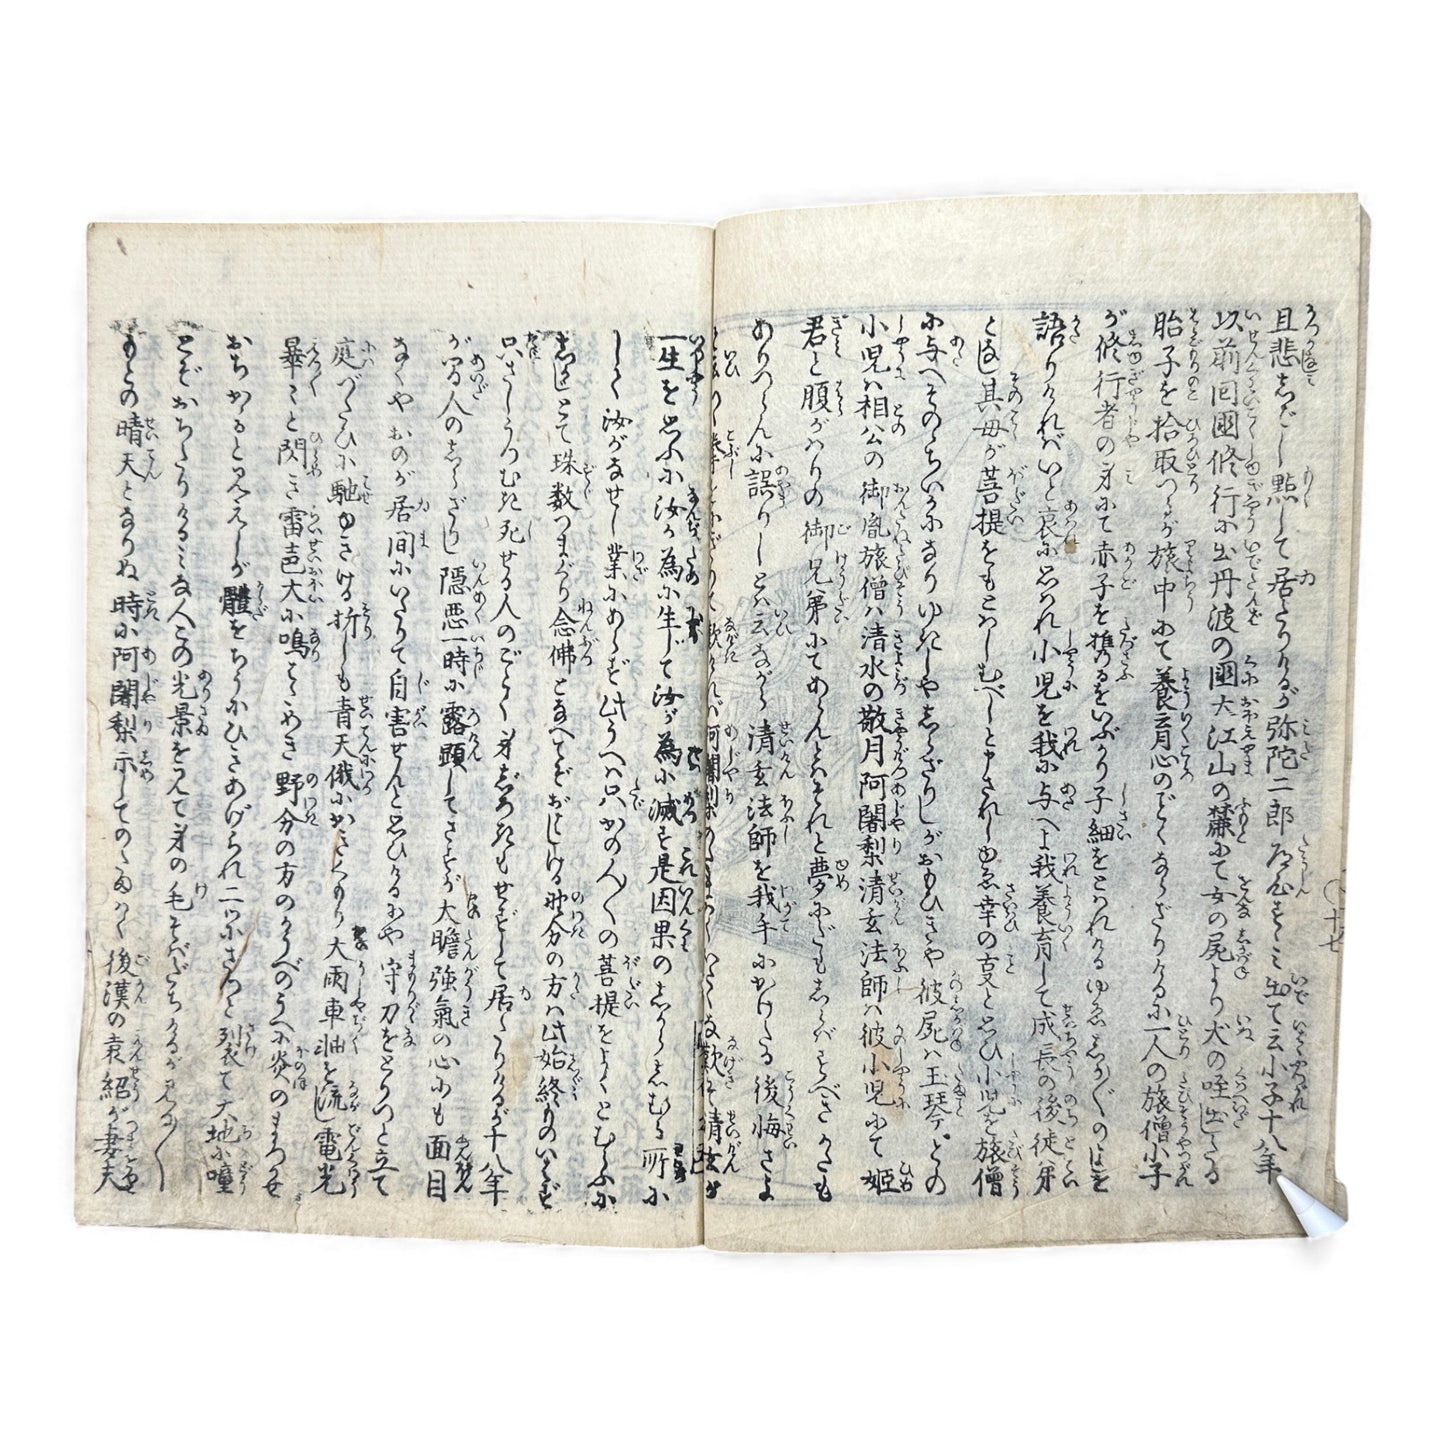 且悲しみ黙して居たりけるが弥陀二郎左衛門すゝみ出て云小子十八年
以前回國修行に出丹波の國大江山の麓にて女の屍より犬の咥出したる
胎子を拾取つるが旅中にて養育心のごとくならざりけるに一人の旅僧小子
が修行者の身にて赤子を携るをいぶかり子細をとはれけるゆゑしか〴〵のよしを
語りければいと哀に思はれ小児を我に与へよ我養育して成長の後徒弟
となし其母が菩提をもとはしむべしと申されしゆゑ幸の事と思ひ小児を旅僧
に与へそのちいかになりゆきしやしらざりしがおもひきや彼屍は玉琴どのの
小児は相公の御胤旅僧は清水の敬月阿闍梨清玄法師は彼小児にて姫
君と腹がはりの御兄弟にてあらんとはそれと夢にだもしらばすべきかたも
ありつらんに誤りしとは云ながら清玄法師を我手にかけたる後悔さよ
一生を思ふに汝が為に生じて汝が為に滅す是因果のしからしむる所に
して汝がなせし業にあらず此うへは只かの人々の菩提をよくとむらふに
しかじとて珠数つまぐり念佛となへてぞおはしける野分の方は此始終ものいはず
只さしうつむき死せる人のごとく身じろきもせずして居たりけるが十八年
が間人のしらざりし隠悪一時に露顕してさすが大膽強氣の心にも面目
なくやおのが居間にいたりて自害せんと思ひけるにや守刀をとりつと立て
庭づたひに馳ゆきける折しも青天俄にかきくもり大雨車軸を流し電光
畢々と閃き雷声大に鳴とゞめき野分の方のかうべのうへに炎のまろかせ
おちかゝると見えしが體をちうにひきあげられ二ツにさつと裂て大地に噇
とぞおちたりけるみな人この光景を見て身の毛そばだちけるが見る〳〵
もとの晴天となりぬ時に阿闍梨示してのたまはく後漢の袁紹が妻夫